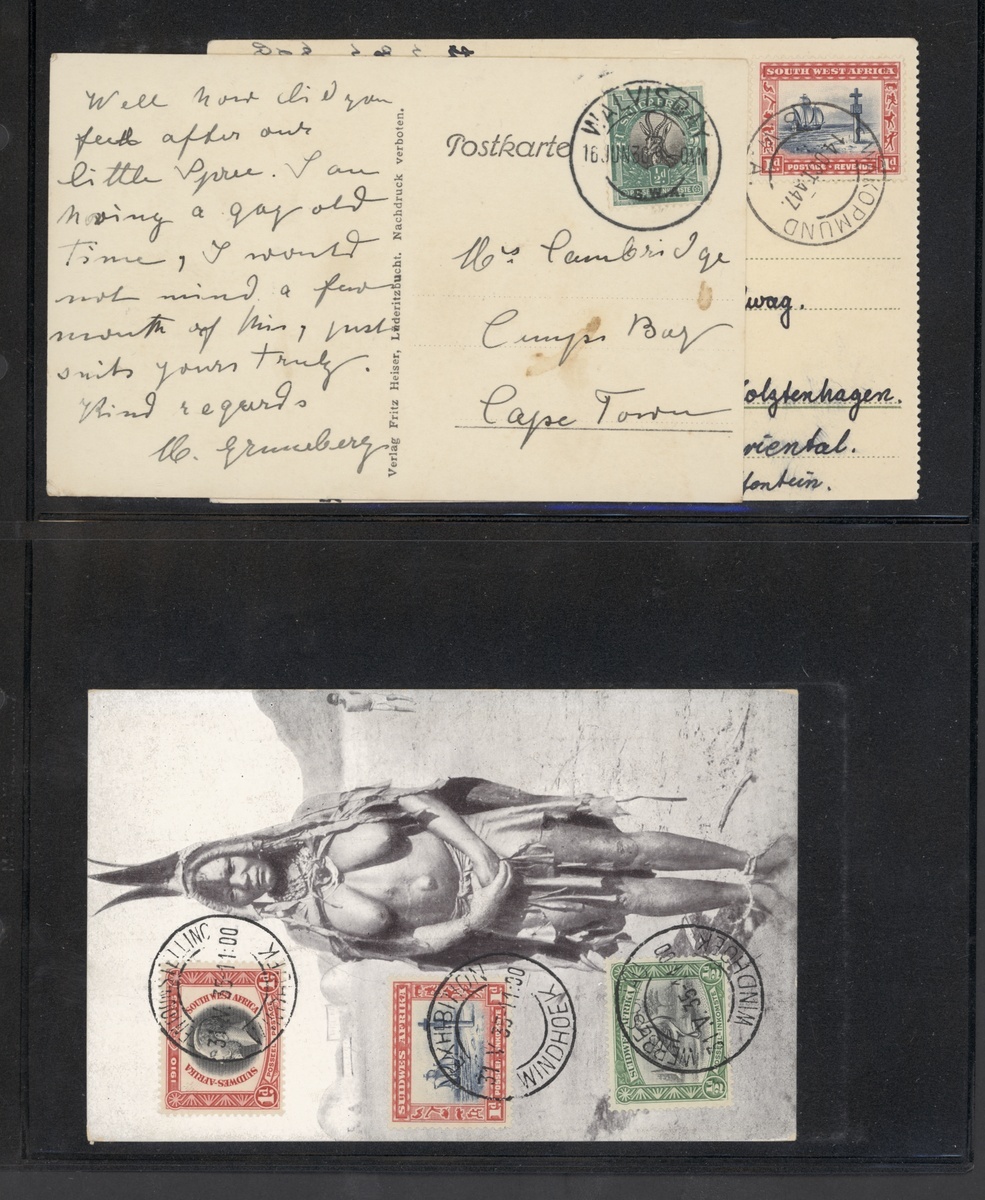 Well how did you
feel after our
little Spree. I am
having a gay old
Time, I would
not mind a few
month of this, just
suits yours Truly.
Kind regards
M. Gruneberg
Verlag Fritz Heiser, Luderitzbucht. Nachdruck verboten.
Postkarte
WALVIS BAY
16 JUN 36
S.W.A.
½d
Mrs Cambridge
Camps Bay
Cape Town
SOUTH WEST AFRICA
POSTAGE · REVENUE
1d
SWAKOPMUND
wag.
olztenhagen.
riental.
fontein.
SOUTH WEST AFRICA
SUIDWES-AFRIKA
1910
1d
11:00
SUIDWES AFRIKA
1d
WINDHOEK
11:00
½d
WINDHOEK